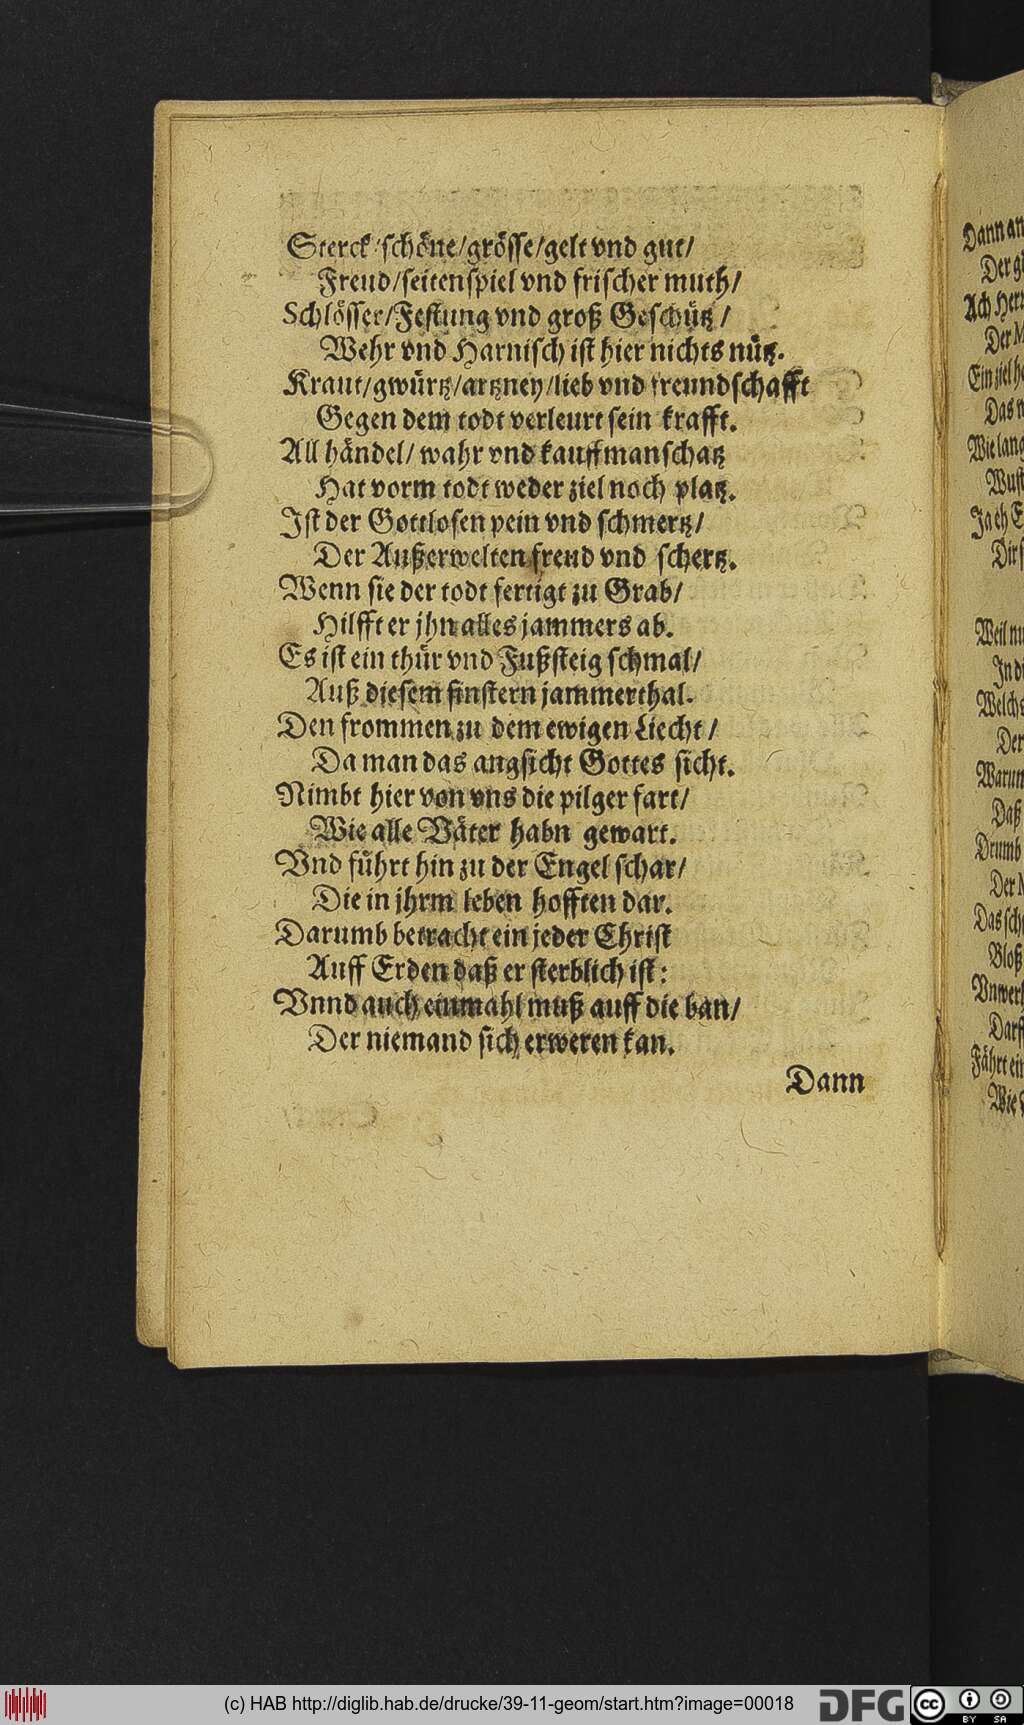 Sterck/schöne/grösse/gelt vnd gut/
Freud/seitenspiel vnd frischer muth/
Schlösser/Festung vnd groß Geschütz/
Wehr vnd Harnisch ist hier nichts nütz.
Kraut/gwürtz/artzney/lieb vnd freundschafft
Gegen dem todt verleurt sein krafft.
All händel/wahr vnd kauffmanschatz
Hat vorm todt weder ziel noch platz.
Ist der Gottlosen pein vnd schmertz/
Der Außerwelten freud vnd schertz.
Wenn sie der todt fertigt zu Grab/
Hilfft er jhn alles jammers ab.
Es ist ein thür vnd Fußsteig schmal/
Auß diesem finstern jammerthal.
Den frommen zu dem ewigen Liecht/
Da man das angsicht Gottes sicht.
Nimbt hier von vns die pilger fart/
Wie alle Väter habn gewart.
Vnd führt hin zu der Engel schar/
Die in jhrm leben hofften dar.
Darumb betracht ein jeder Christ
Auff Erden daß er sterblich ist:
Vnnd auch einmahl muß auff die ban/
Der niemand sich erweren kan.
Dann
Dann an
Der g
Ach Herr
Der M
Ein ziel h
Das n
Wie lang
Wust
Ja eh E
Dir s
Weil nu
In di
Welchs
Der
Warum
Daß
Drumb
Der M
Das sch
Bloß
Vnwer
Darf
Fährt ein
Wie
(c) HAB http://diglib.hab.de/drucke/39-11-geom/start.htm?image=00018
DFG
cc
BY SA